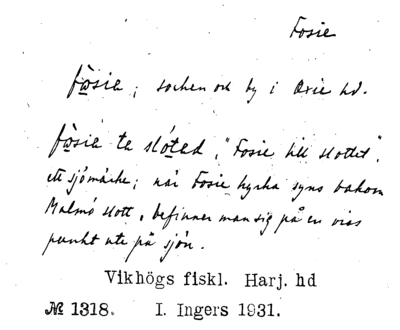 Fosie
fòsie; socken och by i Oxie hd.
fòsie te slóted, "Fosie till slottet",
ett sjömärke; när Fosie kyrka syns bakom
Malmö slott, befinner man sig på en viss
punkt ute på sjön.
Vikhögs fiskl. Harj. hd
№ 1318. I. Ingers 1931.